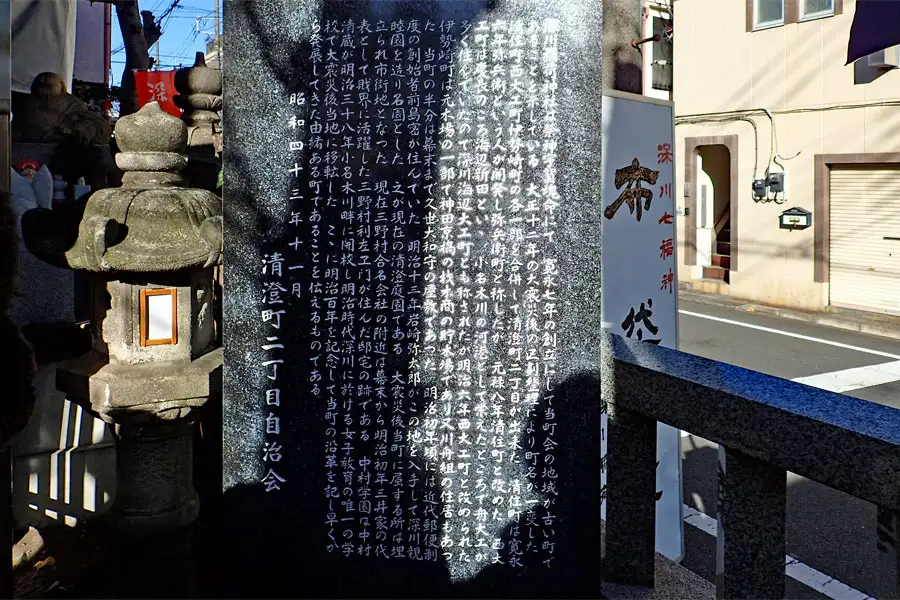 深川稲荷神社は祭神宇賀魂命にて 寛永七年の創立にして当町会の地域が古い町で
あったことを示している 大正十二年の大震災後の区劃整理により町名が一変した
清住町西大工町伊勢崎町の各一部を合併して清澄町二丁目が出来た 清住町は寛永
六年弥兵衛という人が開発し弥兵衛町と称したが 元禄八年清住町と改めた 西大
工町は慶長のころ海辺新田といい 小名木川の河港として栄えたところで舟大工が
多く住んでいたので深川海辺大工町とも称されたが明治六年西大工町と改められた
伊勢崎町は元木場の一部で神田京橋の材木商の貯木場であり又川舟組の住居もあっ
た 当町の半分は幕末まで久世大和守の屋敷であった 明治初年頃には近代郵便制
度の創始者前島密が住んでいた 明治十三年岩崎弥太郎がこの地を入手して深川親
睦園を造り名園とした 之が現在の清澄庭園である 大震災後当町に属する所は埋
立られ市街地となった 現在三野村合名会社の附近は幕末から明治初年三井家の代
表として財界に活躍した三野村利左ヱ門が住んだ邸宅の跡である 中村学園は中村
清蔵が明治三十八年小名木川畔に開校し明治時代深川に於ける女子教育の唯一の学
校で大震災後当地に移転した こゝに明治百年を記念して当町の沿革を記し早くか
ら発展してきた由緒ある町であることを伝えるものである
昭和四十三年十一月
清澄町二丁目自治会
深川七福神
布袋